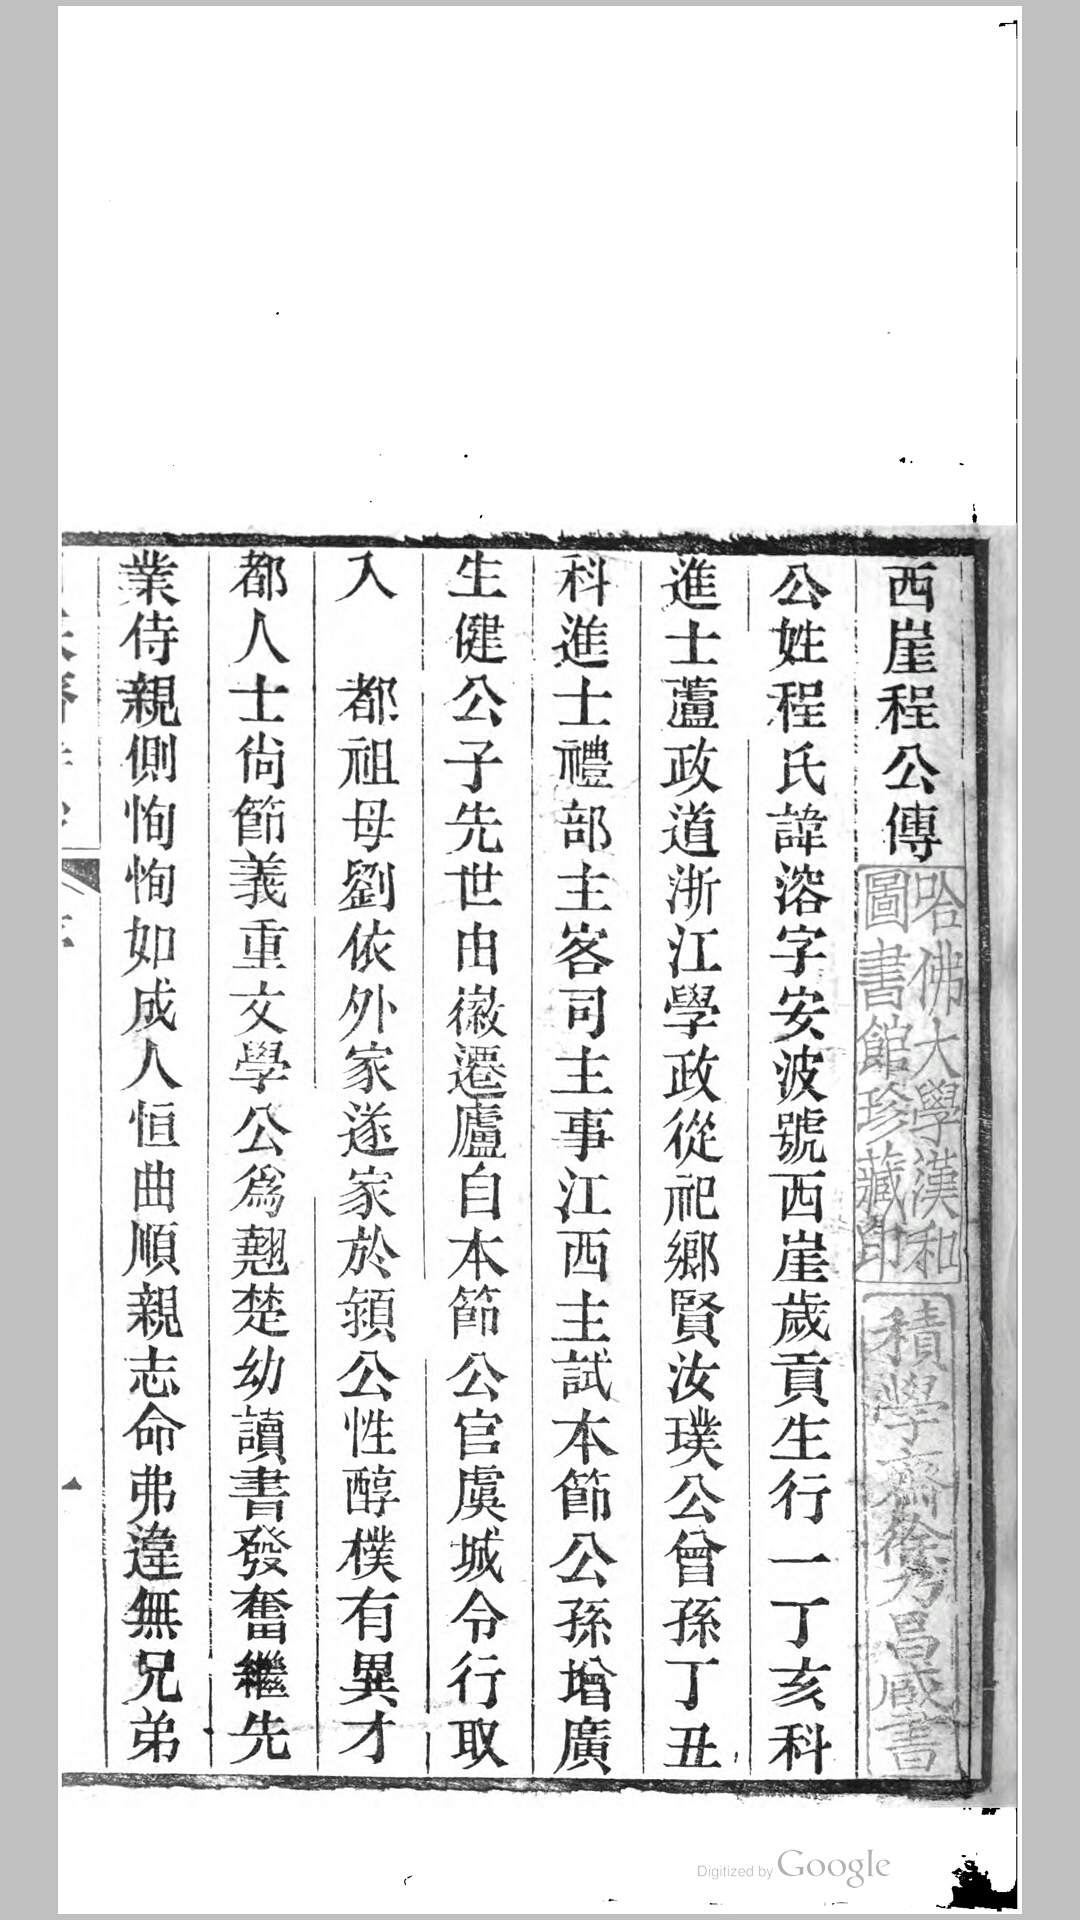 西崖程公傳
哈佛大學漢和
圖書館珍藏印
積學齋徐乃昌藏書
公姓程氏諱溶字安波號西崖歲貢生行一丁亥科
進士蘆政道浙江學政從祀鄉賢汝璞公曾孫丁丑
科進士禮部主客司主事江西主試本節公孫增廣
生健公子先世由徽遷廬自本節公官虞城令行取
入　都祖母劉依外家遂家於潁公性醇樸有異才
都人士尙節義重文學公爲翹楚幼讀書發奮繼先
業侍親側恂恂如成人恒曲順親志命弗違無兄弟
Digitized by Google